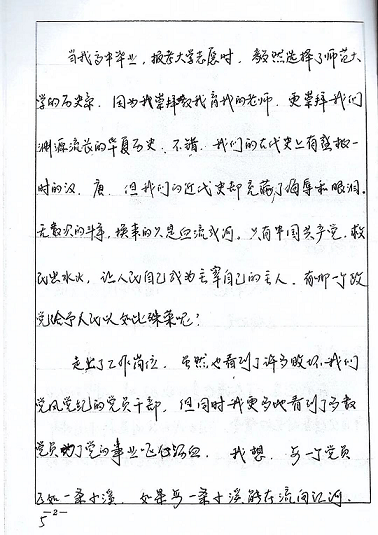 当我高中毕业，报考大学志愿时，毅然选择了师范大
学的历史系，因为我崇拜教我育我的老师，更崇拜我们
渊源流长的华夏历史，不错，我们的古代史上有盛极一
时的汉、唐，但我们的近代史却充满了侮辱和眼泪。
无数次的斗争，换来的只是血流成河，只有中国共产党，救
民出水火，让人民自己成为主宰自己的主人，有哪一个政
党给予人民以如此殊荣呢？
走出了工作岗位，虽然也看到了许多败坏我们
党风党纪的党员干部，但同时我更多地看到了多数
党员为了党的事业呕心沥血，我想，每一个党员
正如一条小溪，如果每一条小溪能在流向江河。
-2-
5